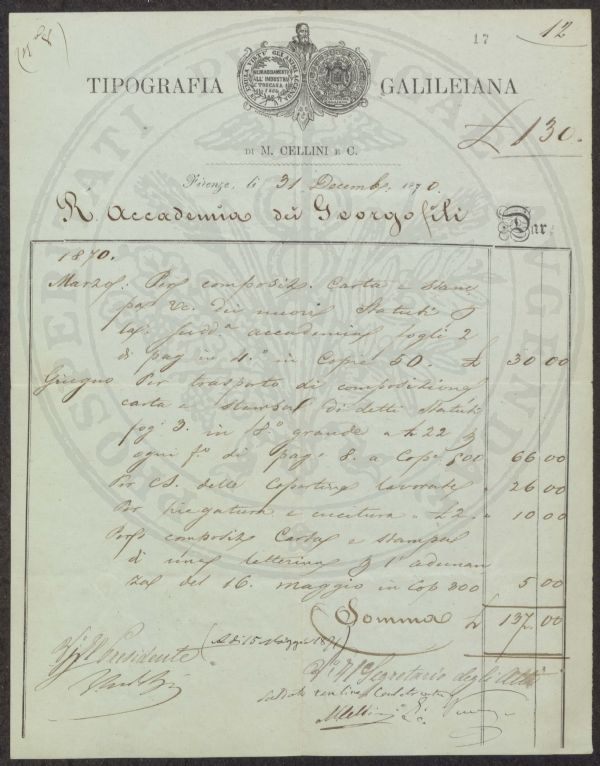 17 12
TIPOGRAFIA GALILEIANA
DI M. CELLINI E C.
£ 130.
Firenze, li 31 Decembe 1870.
R. Accademia dei Georgofili
Dare
1870.
Marzo. Per composiz. Carta e stam
pa &c. dei nuovi Statuti p
la Sudda accademia fogli 2
di pag in 4.º in Copie 50. £ 30 00
Giugno Per trasporto di composizione
carta e stampa di detti Statuti
fog: 3. in 8º grande a £ 22 p
ogni fº di pag: 8. a Cope 500 66 00
Per CS. delle Copertine lavorate 26 00
Per piegatura e cucitura 10 00
Per composiz Carta e stampa
di una letterina p l'adunan
za del 16. maggio in Cop 300 5 00
Somma £ 137.00
Il Presidente
(A dì 15 Maggio 1871)
Il Segretario degli Atti